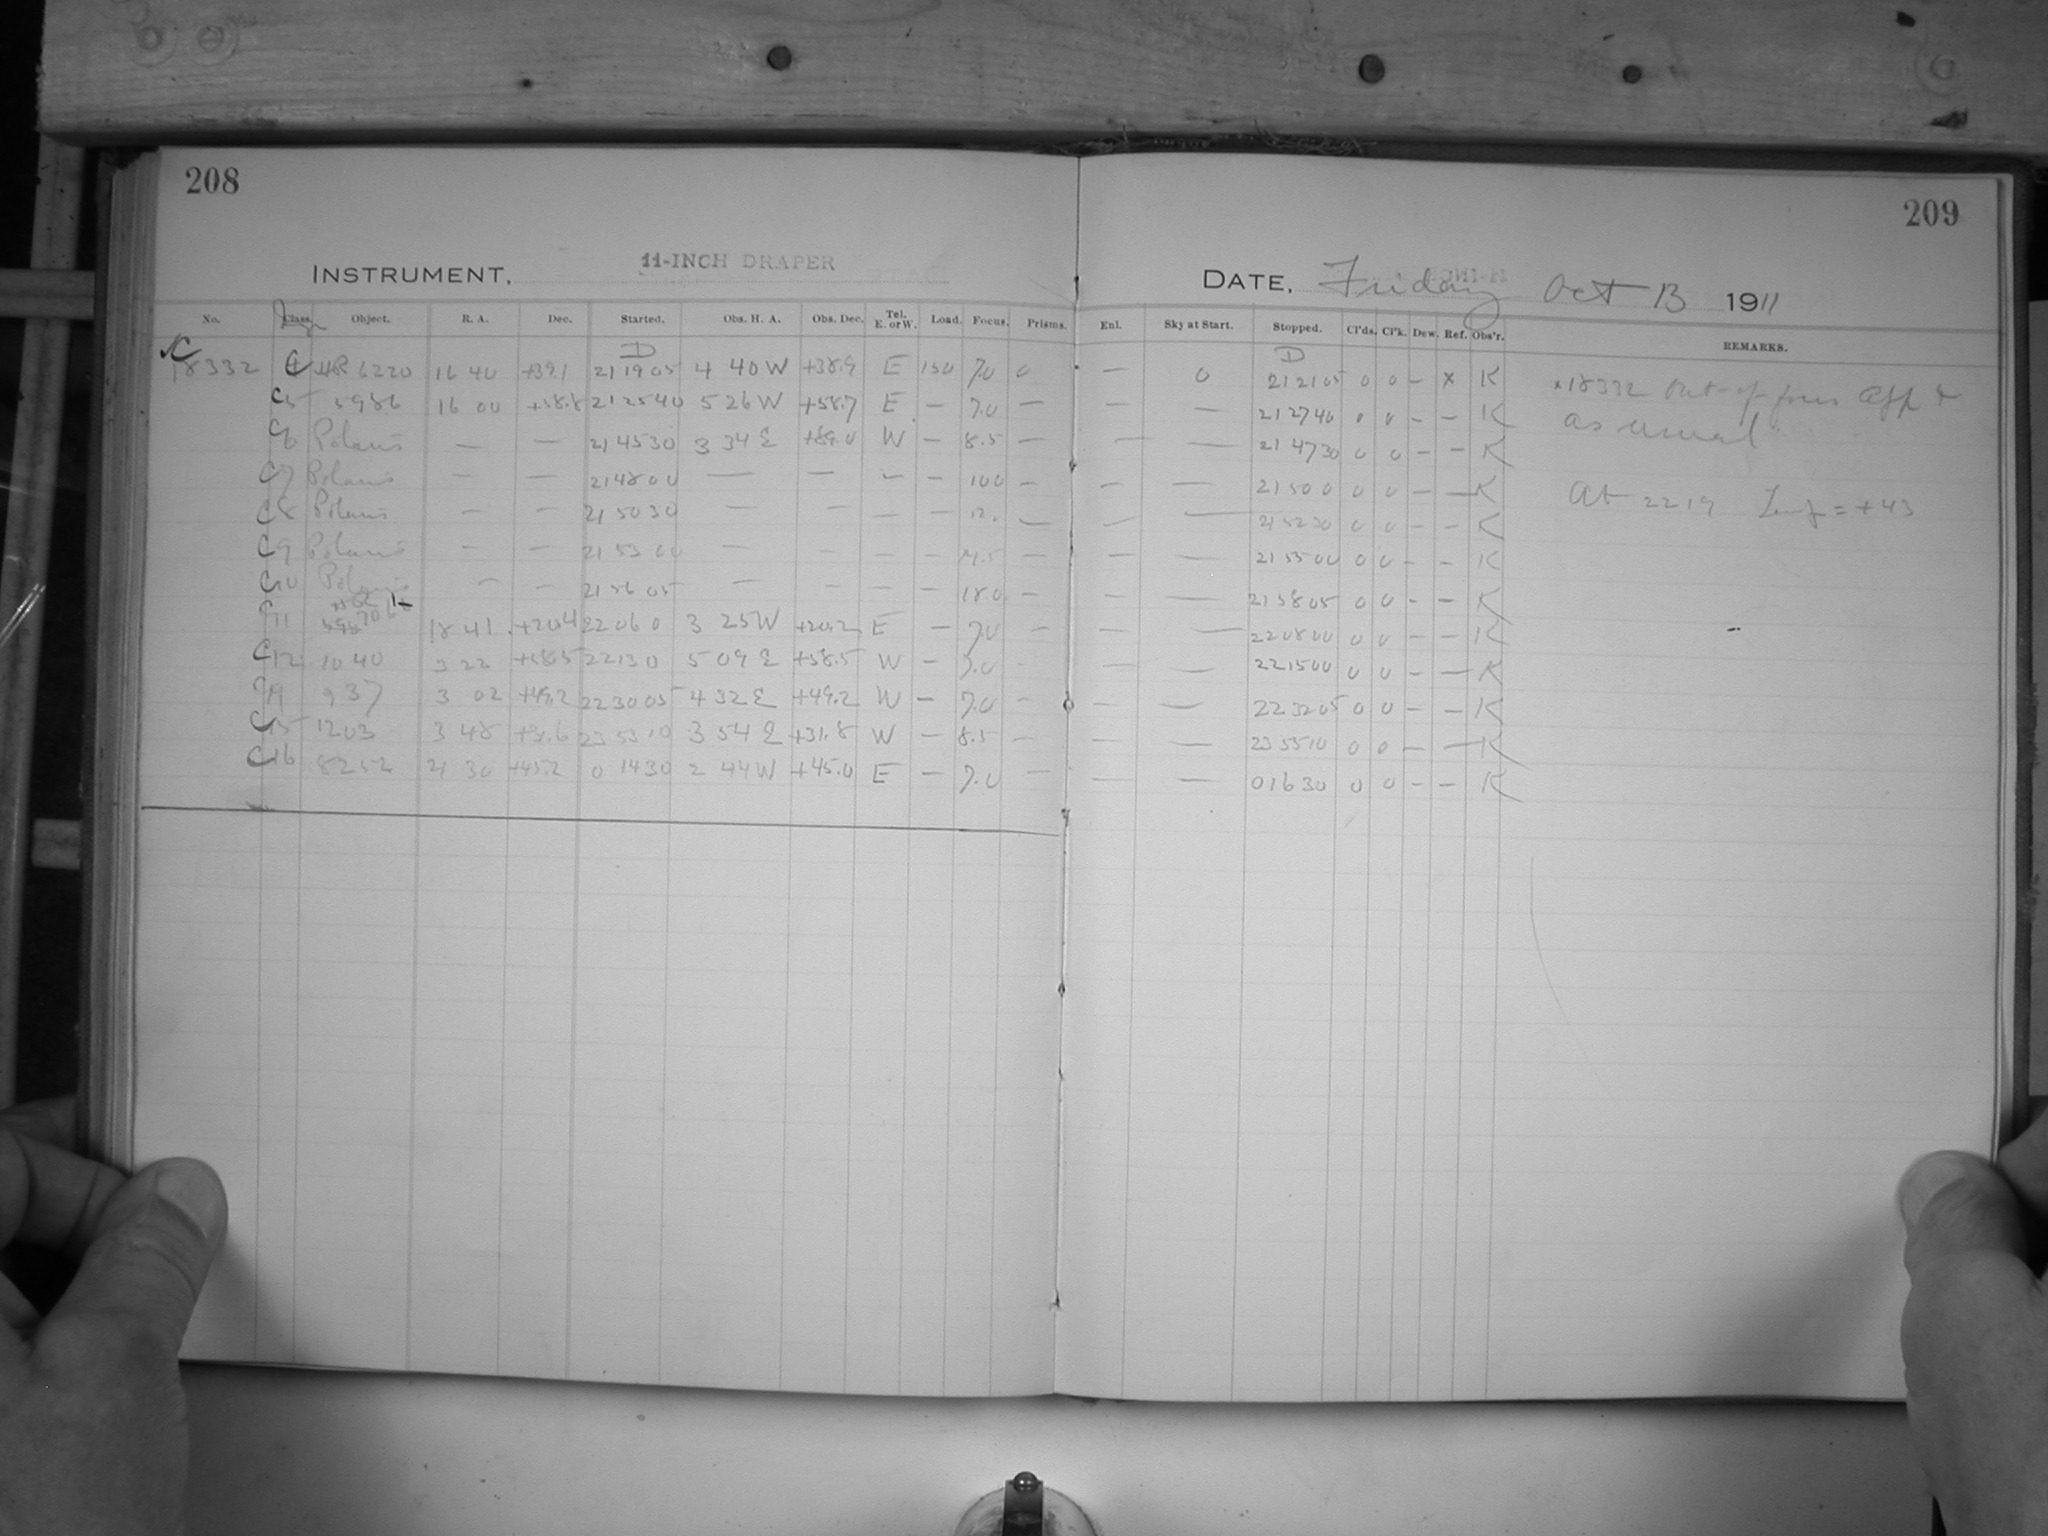 208
209
INSTRUMENT. 11-INCH DRAPER
DATE. Friday Oct 13 1911
No. Class. Object. R. A. Dec. Started. Obs. H. A. Obs. Dec. Tel. E. or W. Load. Focus. Prisms. Enl. Sky at Start. Stopped. Cl'ds. Cl'k. Dew. Ref. Obs'r. REMARKS.
D D
18332 C4 HR 6220 16 40 +39.1 21 19 05 4 40 W +38.9 E 150 7.0 0 — 0 21 21 05 0 0 – x K x18332 Out-of-focus
C5 5986 16 00 +58.8 21 25 40 5 26 W +58.7 E — 7.0 — — 21 27 40 0 0 – — K as usual
C6 Polaris — — 21 45 30 3 34 E +89.0 W — 8.5 — — — 21 47 30 0 0 – – K
C7 Polaris — — 21 48 00 — — – — 10.0 — — — 21 50 0 0 0 – — K At 22 19 Temp = +43
C8 Polaris — — 21 50 30 — — — — 12. — — — 21 52 30 0 0 – – K
C9 Polaris — — 21 53 00 — — – — — — — 21 55 00 0 0 – – K
C10 Polaris — — 21 56 05 — — — — 18.0 — — 21 58 05 0 0 – – K
C11 18 41 +20.4 22 06 0 3 25 W +20.2 E — 7.0 — — — 22 08 00 0 0 – – K
C12 1040 3 22 +58.5 22 13 0 5 09 E +58.5 W — 7.0 – — — 22 15 00 0 0 – — K
937 3 02 +49.2 22 30 05 4 32 E +49.2 W — 7.0 – — — 22 32 05 0 0 – — K
C15 1203 3 48 +31.6 23 53 10 3 54 E +31.8 W — 8.5 — — — 23 55 10 0 0 — — K
C16 8252 21 30 +45.2 0 14 30 2 44 W +45.0 E — 7.0 — — — 0 16 30 0 0 – — K